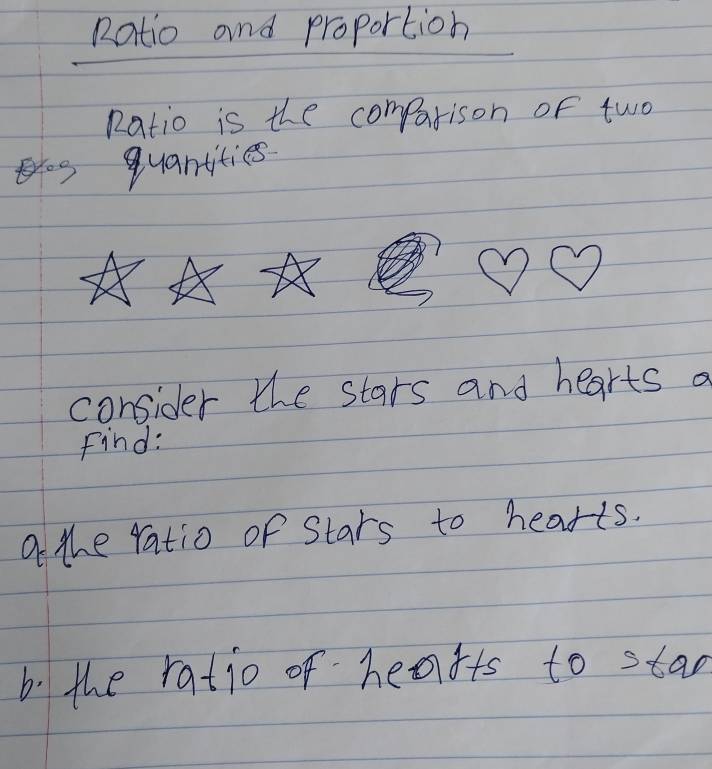 Ratio and proportion
Ratio is the comparison of two
quantities.
consider the stars and hearts a
find:
a. the ratio of stars to hearts.
b. the ratio of hearts to star